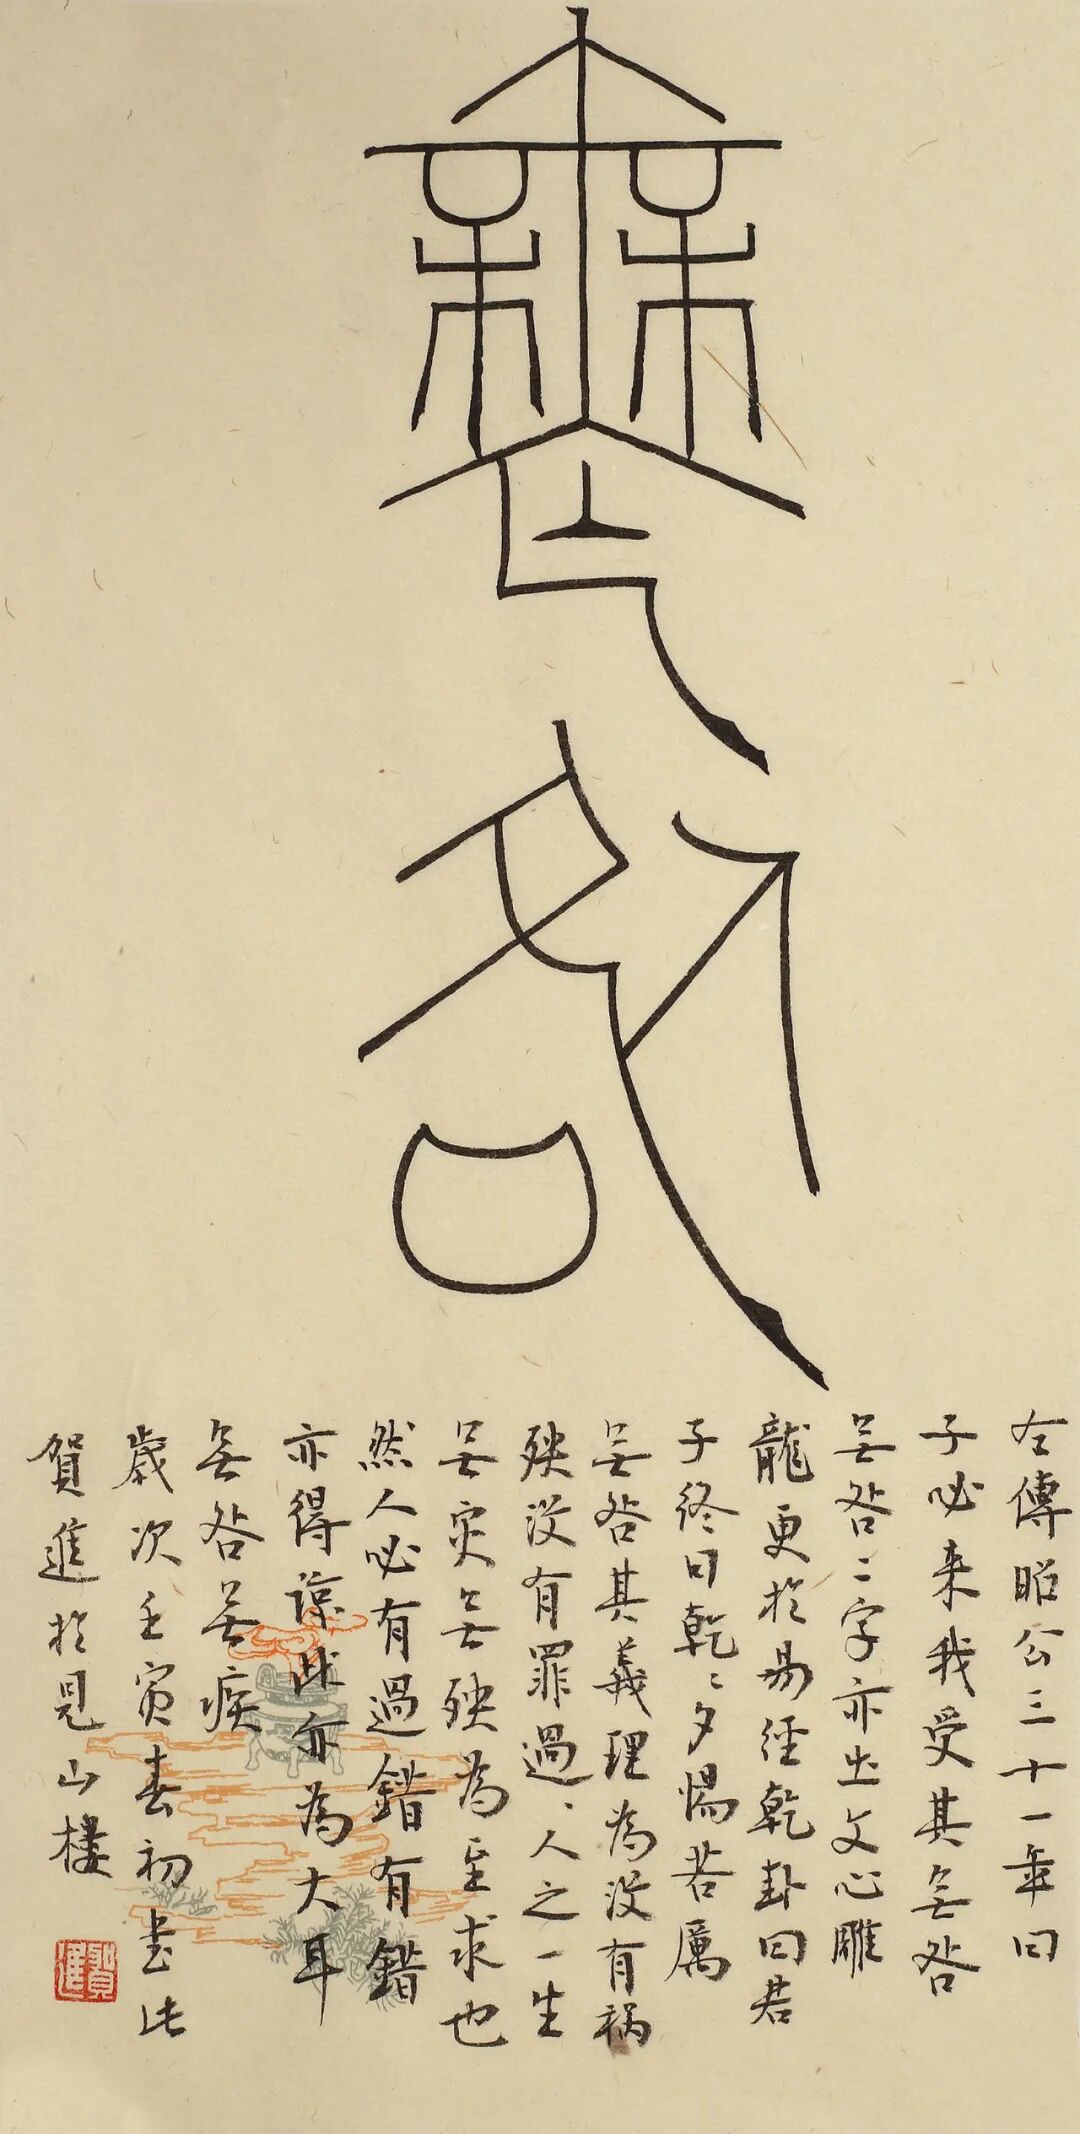 無咎
左傳昭公三十一年曰
子必来我受其無咎
無咎二字亦出文心雕
龍更於易經乾卦曰君
子終日乾乾夕惕若厲
無咎其義理為没有祸
殃没有罪過、人之一生
無灾無殃為至求也
然人必有過錯有錯
亦得諒此亦為大耳
無咎無疾
歲次壬寅春初書此
賀進於見山樓
賀進